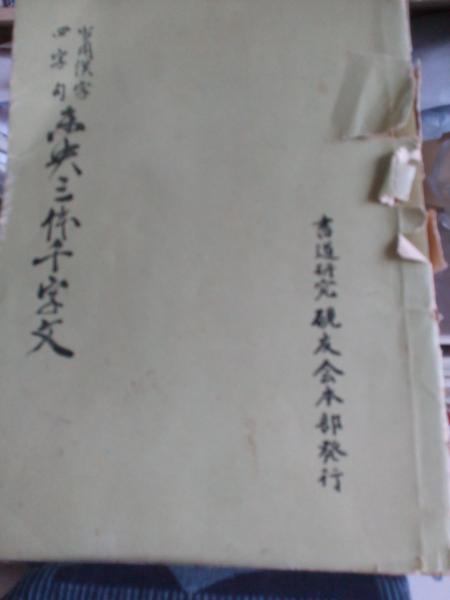 書道研究 硯友会本部発行
当用漢字
四字句 未央三体千字文